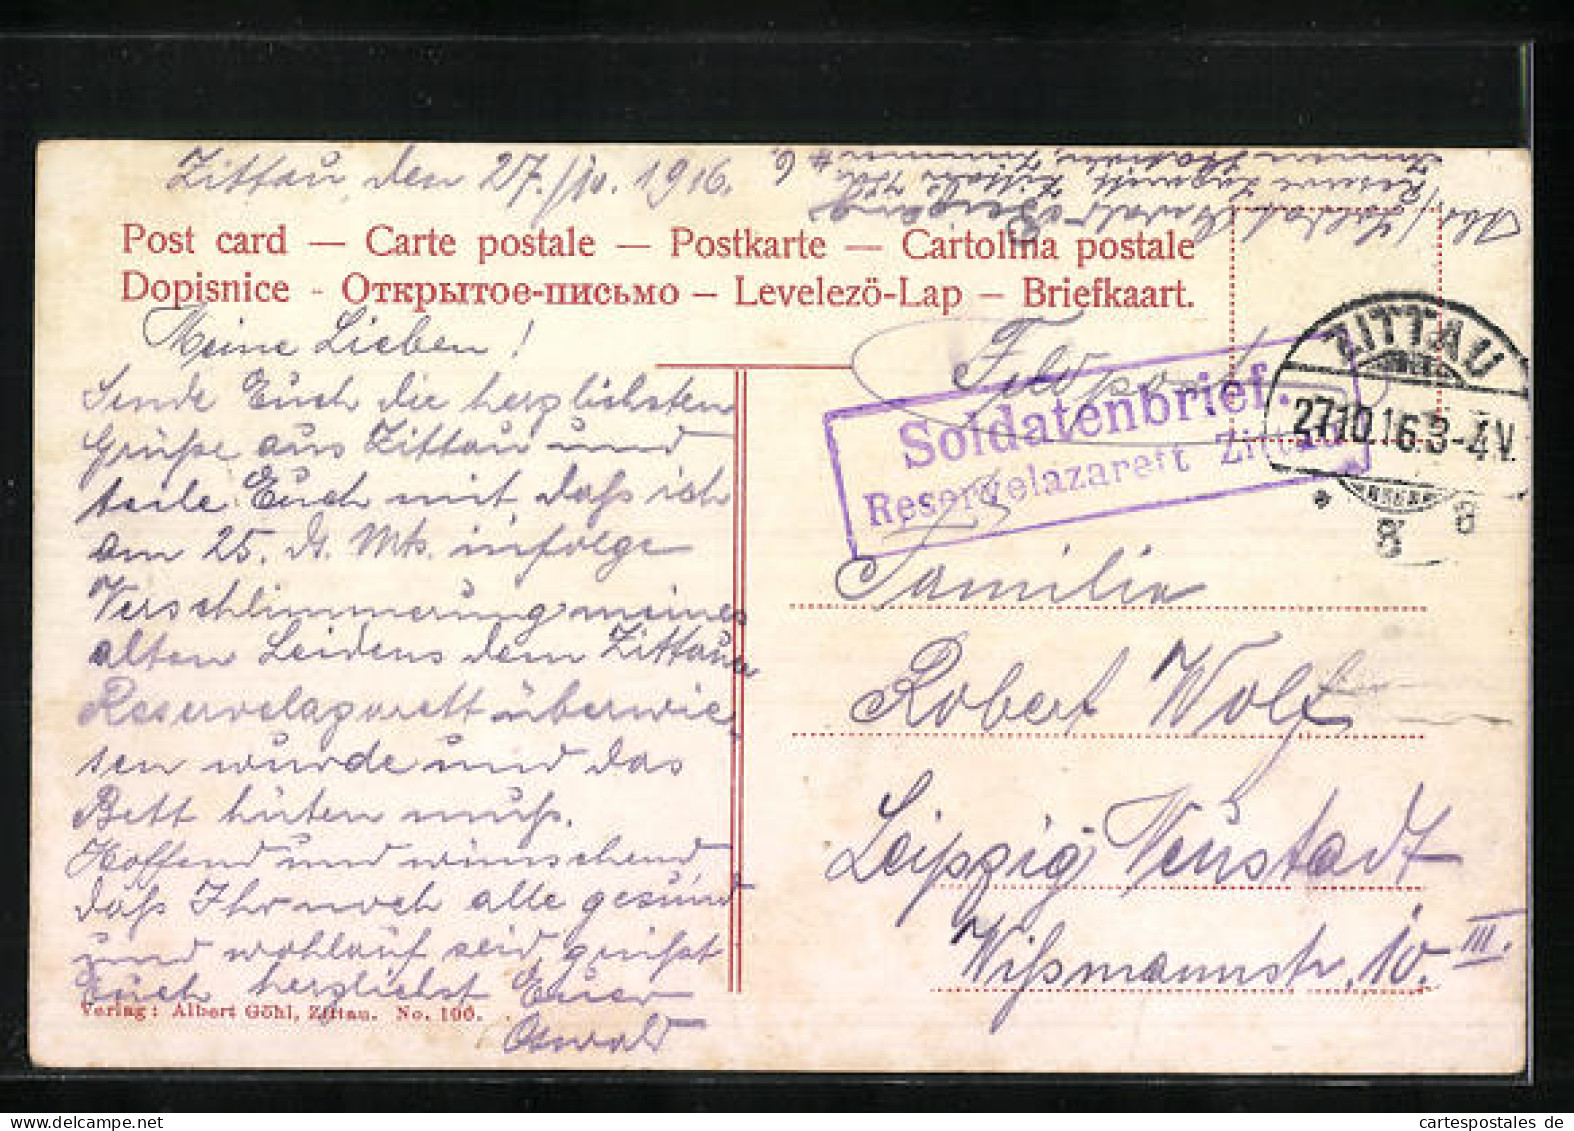 Zittau, den 27./10. 1916.
Abs./Soldat Oswald
Reserve Lazarett Zittau
Zimmer # 6
Post card — Carte postale — Postkarte — Cartolina postale
Dopisnice - Открытое-письмо — Levelező-Lap — Briefkaart.
Meine Lieben!
Sende Euch die herzlichsten
Grüße aus Zittau und
teile Euch mit, daß ich
am 25. d. Mts. infolge
Verschlimmerung meines
alten Leidens dem Zittauer
Reservelazarett überwie-
sen wurde und das
Bett hüten muß.
Hoffend und wünschend
daß Ihr noch alle gesund
und wohlauf seid, grüßt
Euch herzlichst Euer
Oswald
Verlag: Albert Göhl, Zittau. No. 106.
Feldpost
Soldatenbrief.
Reservelazarett Zittau
ZITTAU
27.10.16.3-4N.
* 8 a
Familie
Robert Wolf
Leipzig Neustadt
Wißmannstr. 10. III.
cartespostales.de